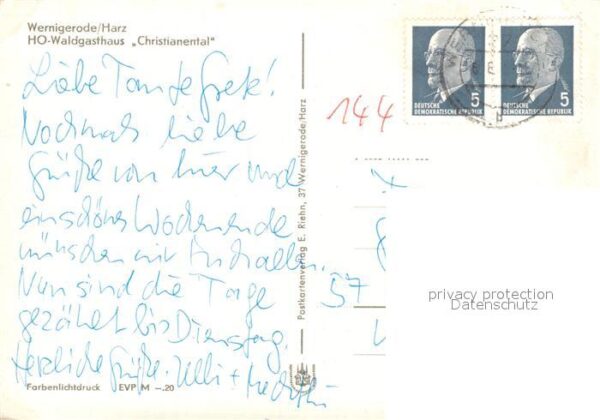 Wernigerode/Harz
HO-Waldgasthaus „Christianental"
Liebe Tante Grete!
Nochmals liebe
Grüße von hier und
ein schönes Wochenende
wünschen wir Euch allen.
Nun sind die Tage
gezählt bis Dienstag.
Herzliche Grüße. Ulli +
Farbenlichtdruck EVP M -.20
Postkartenverlag E. Riehn, 37 Wernigerode/Harz
144
5
DEUTSCHE
DEMOKRATISCHE REPUBLIK
5
DEUTSCHE
DEMOKRATISCHE REPUBLIK
57
privacy protection
Datenschutz